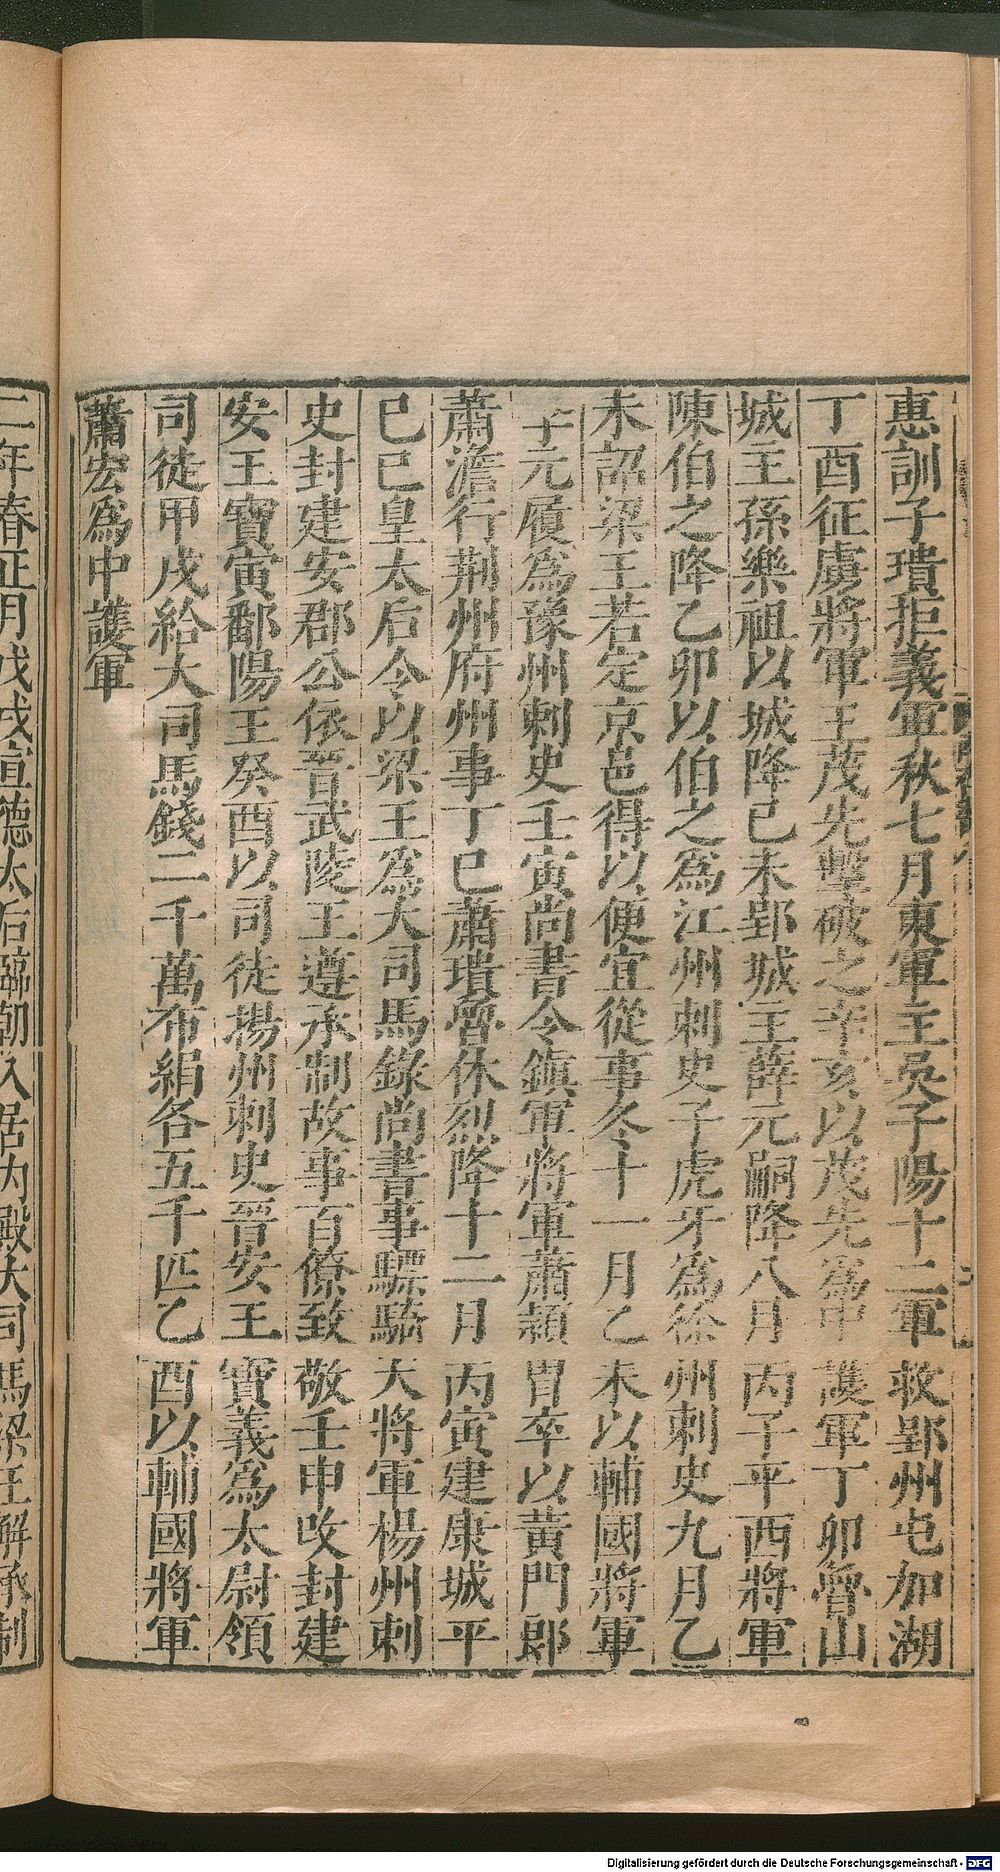 惠訓子璝拒義軍秋七月東軍主吳子陽十二軍救郢州屯加湖
丁酉征虜將軍王茂先擊破之辛亥以茂先爲中護軍丁卯魯山
城主孫樂祖以城降己未郢城主薛元嗣降八月丙子平西將軍
陳伯之降乙卯以伯之爲江州刺史子虎牙爲徐州刺史九月乙
未詔梁王若定京邑得以便宜從事冬十一月乙未以輔國將軍
李元履爲豫州刺史壬寅尚書令鎮軍將軍蕭穎胄卒以黃門郞
蕭澹行荆州府州事丁巳蕭璝魯休烈降十二月丙寅建康城平
己巳皇太后令以梁王爲大司馬錄尚書事驃騎大將軍楊州刺
史封建安郡公依晉武陵王遵承制故事百僚致敬壬申改封建
安王寶寅鄱陽王癸酉以司徒揚州刺史晉安王寶義爲太尉領
司徒甲戌給大司馬錢二千萬布絹各五千匹乙酉以輔國將軍
蕭宏爲中護軍
二年春正月戊戌宣德太后臨朝入居內殿大司馬梁王解承制
Digitalisierung gefördert durch die Deutsche Forschungsgemeinschaft - DFG